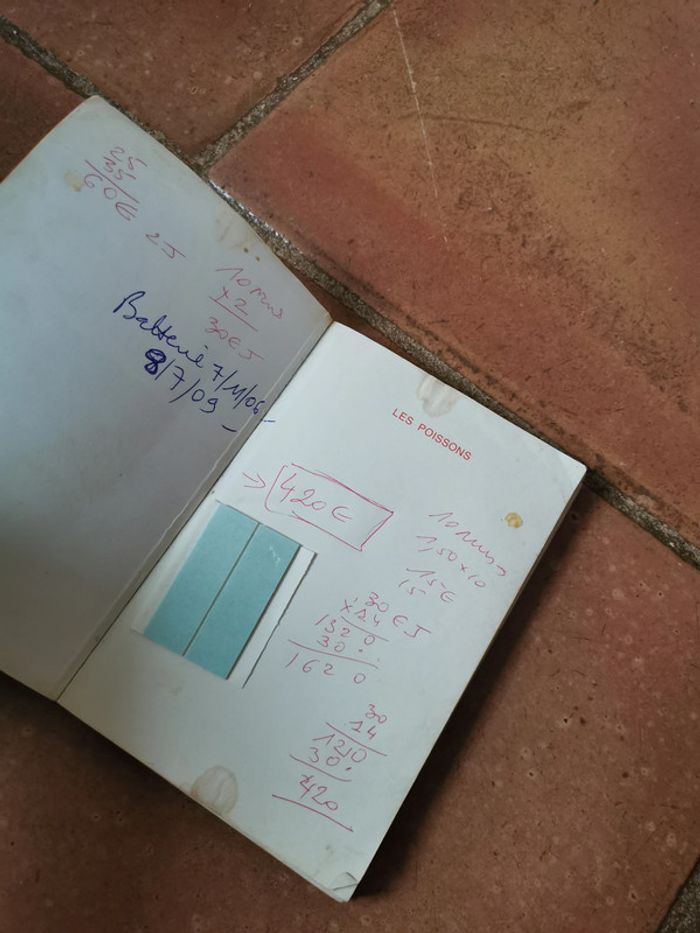 25
35
60€
25
10 mns
x2
30€ J
Batterie 7/11/06
8/7/09
LES POISSONS
→ 420€
10 mns
1,50 x 10
15 €
15
30 € J
x 14
1320
30.
1620
30
14
120
30.
420